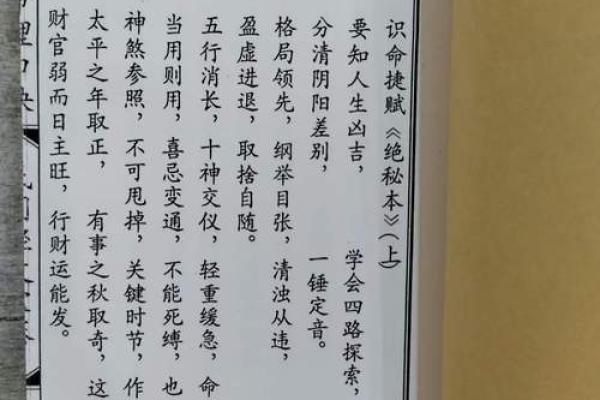 识命捷赋《绝秘本》(上)
要知人生凶吉， 学会四路探索，
分清阴阳差别， 一锤定音。
格局领先，纲举目张，清浊从违，
盈虚进退，取捨自随。
五行消长，十神交仪，轻重缓急，命
当用则用，喜忌变通，不能死缚，也
神煞参照，不可甩掉，关键时节，作
太平之年取正， 有事之秋取奇，这
财官弱而日主旺，行财运能发。